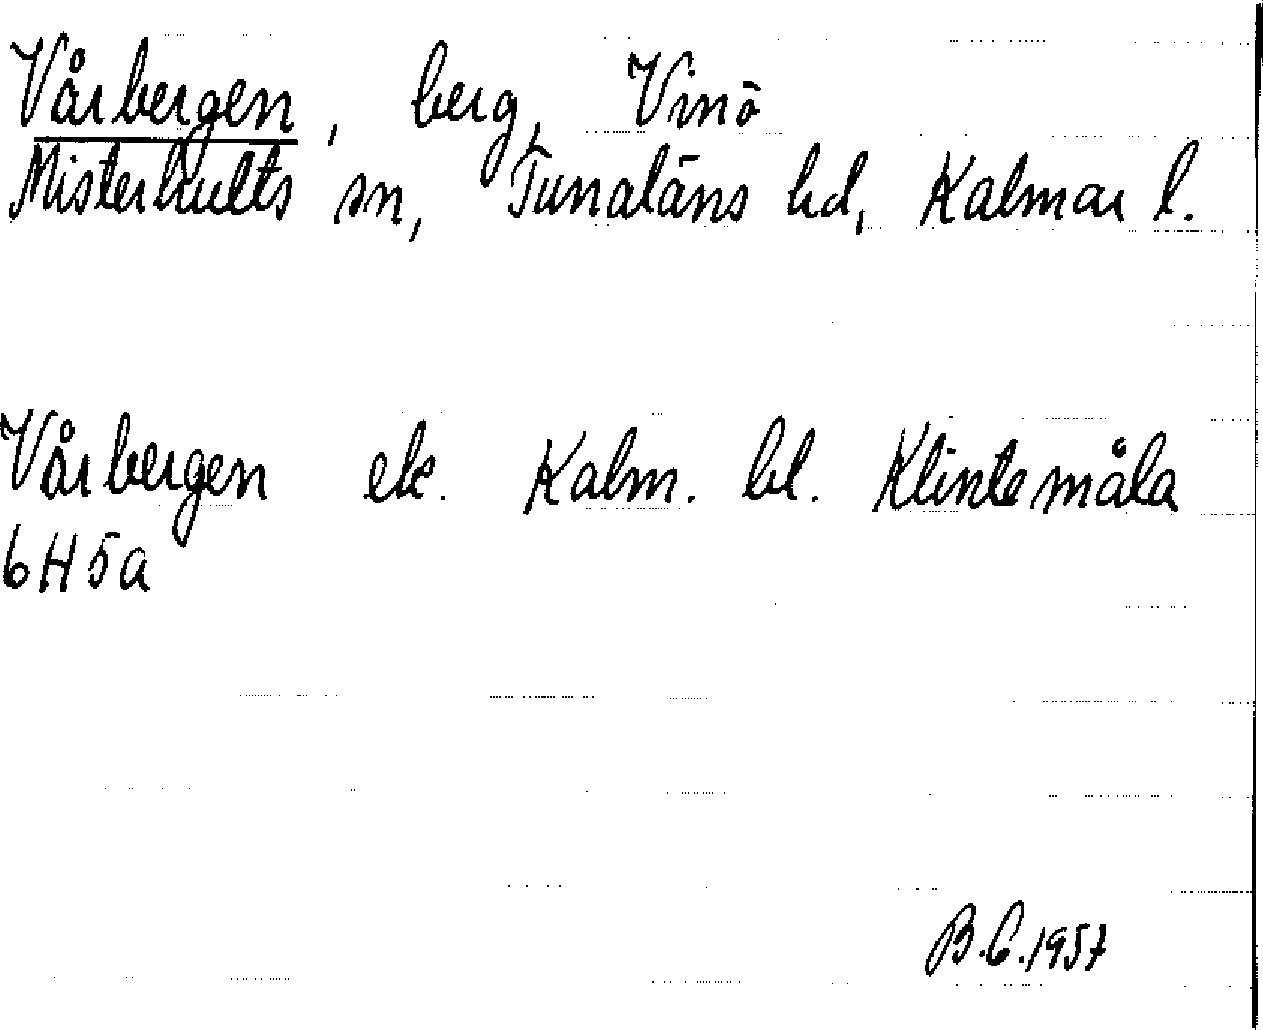 Vårbergen, berg, Vinö
Misterhults sn, Tunaläns hd, Kalmar l.
Vårbergen ek. Kalm. bl. Klintemåla
6H5a
B.C. 1957